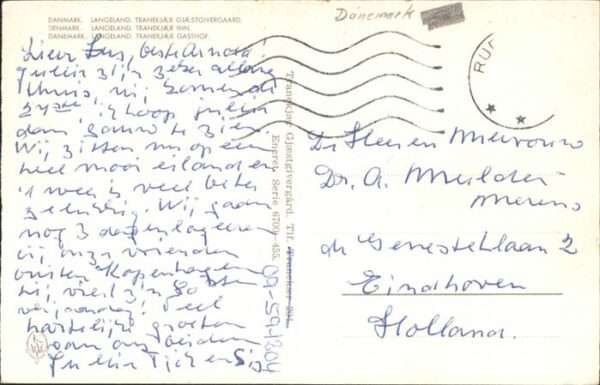 DANMARK. LANGELAND. TRANEKJÆR GJÆSTGIVERGAARD.
DENMARK. LANGELAND. TRANEKJÆR INN.
DÄNEMARK. LANGELAND. TRANEKJÆR GASTHOF.
Dänemark
RUD
Lieve Lus, beste Arnold!
Jullie zijn zeker alleen
thuis, wij komen de
ik hoop jullie
dan gauw te zien.
Wij zitten nu op een
heel mooi eiland en
't weer is veel beter
Wij gaan
nog 3 dagen logeeren
bij onze vrienden
buiten Kopenhagen
hij viert z'n
verjaardag! Veel
hartelijke groeten
van ons beiden
Jullie
Tranekjær Gjæstgivergård. Tlf. Tranekær 204.
Eneret. Serie 6700. 455.
09-591204
De Heer en Mevrouw
Dr. A. Mulder
de Genestetlaan 2
Eindhoven
Holland.